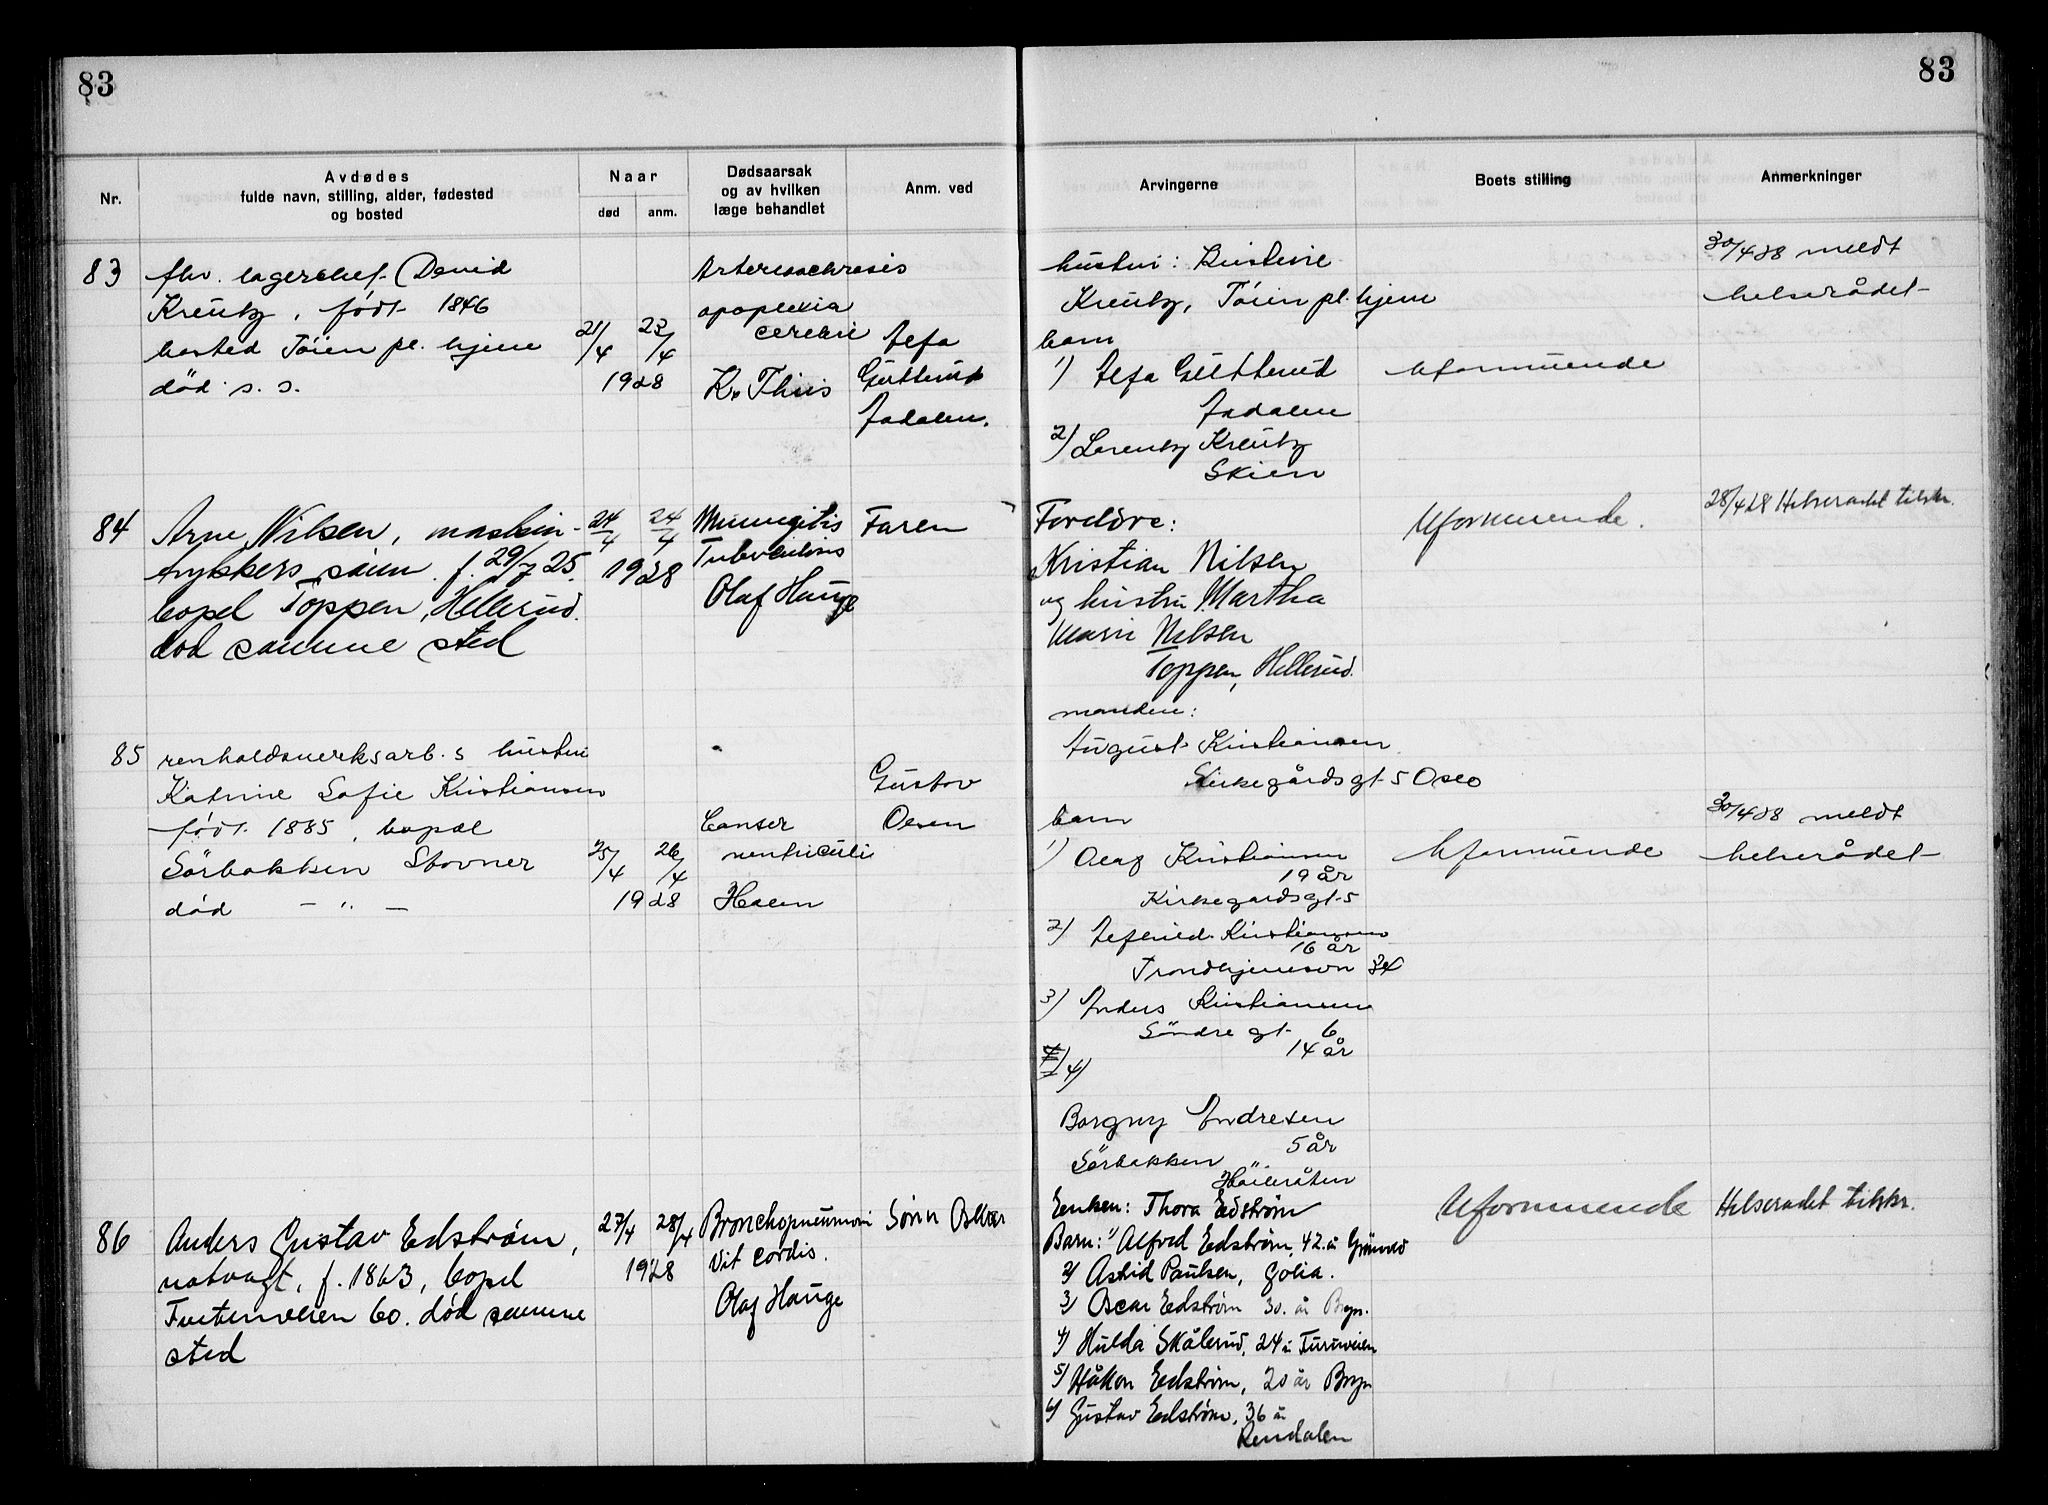 83
83
Nr.
Avdødes
fulde navn, stilling, alder, fødested
og bosted
Naar
død
anm.
Dødsaarsak
og av hvilken
læge behandlet
Anm. ved
Arvingerne
Boets stilling
Anmerkninger
83
fhv. lagerchef David
Kreutz, født 1846
bosted Töien pl. hjem
död s. s.
21/4
23/4
1928
apoplexia
cerebri
K. Thiis
hustru: Kristine
Kreutz, Töien pl. hjem
barn
1)
2) Lorentz Kreutz
Skien
Uformuende
30/4 28 meldt
helserådet
84
Arne Nilsen, maskin-
trykkers søn f. 29/7 25.
bopel Toppen, Hellerud.
död samme sted
24/4
24/4
1928
Meningitis
Tuberculosis
Olaf Hauge
Faren
Foreldre:
Kristian Nilsen
og hustru Martha
Marie Nilsen
Toppen, Hellerud.
Uformuende.
28/4 28 Helseradet tilskr.
85
renholdsverksarb.s hustru
Katrine Sofie Kristiansen
født 1885, bopæl
Sörbakken Stovner
död — " —
25/4
26/4
1928
Canser
ventriculi
Gustav
Olsen
manden:
August Kristiansen
Kirkegårdsgt 5 Oslo
barn
1) Olaf Kristiansen
19 år
Kirkegardsgt 5
2) Kristiansen
16 år
Trondhjemsvn 34
3) Anders Kristiansen
Söndre gt 6
14 år
4)
Borgny Andresen
5 år
Sörbakken
Høibråten
Uformuende
30/4 28 meldt
helserådet
86
Anders Gustav Edström,
natvagt, f. 1863, bopel
60. död samme
sted
27/4
28/4
1928
Bronchopneumoni
Vit cordis.
Olaf Hauge
Enken: Thora Edström
Barn: 1) Alfred Edström, 42 år
2) Astrid Paulsen, Golia.
3) Oscar Edström 30 år Bryn.
4) Hulda Skålerud, 24 år Furuveien
5) Håkon Edström, 20 år Bryn
6) Gustav Edström, 36 år
Rendalen
Uformuende
Helseradet tilskr.